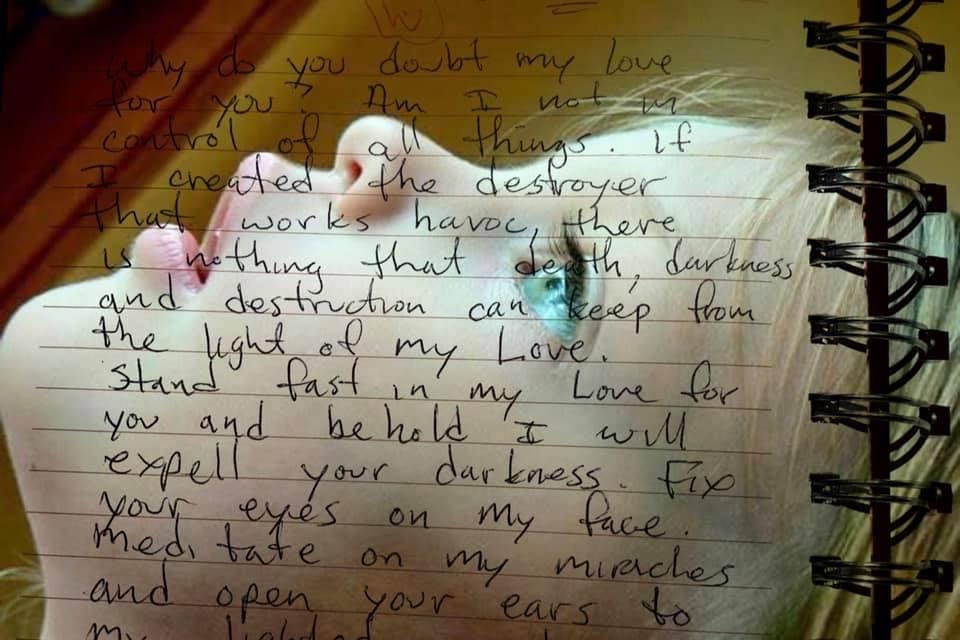 (w)
Why do you doubt my love
for you? Am I not in
control of all things. If
I created the destroyer
that works havoc, there
is nothing that death, darkness
and destruction can keep from
the light of my Love.
Stand fast in my Love for
you and behold I will
expell your darkness. Fix
your eyes on my face.
Meditate on my miracles
and open your ears to
my